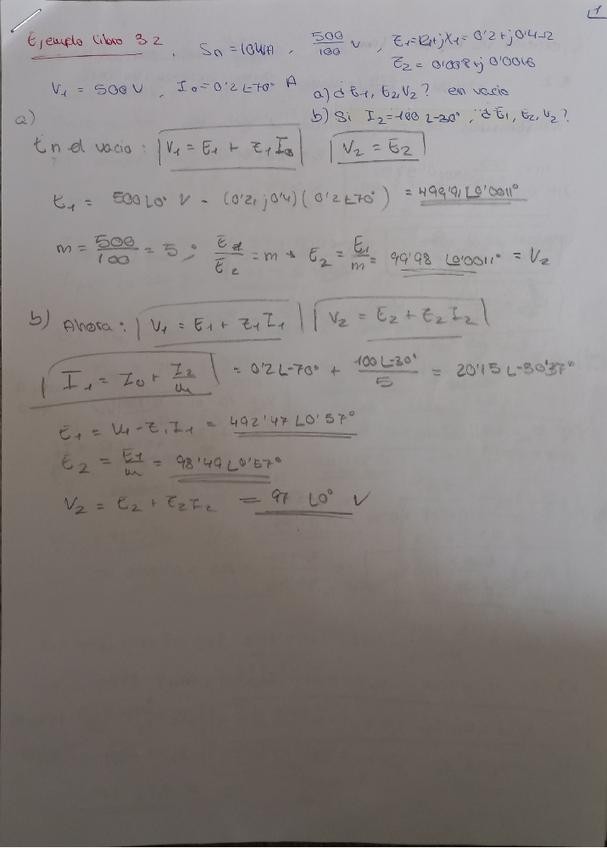 1
Ejemplo libro 3.2, Sn = 10kVA, 500/100 V, Z1=R1+jX1= 0'2+j0'4 Ω
Z2 = 0'008+j0'0016
V1 = 500V, I0=0'2 ∟-70° A a) ¿E1, E2, V2? en vacio
b) Si I2=100 ∟-30°, ¿E1, E2, V2?
a)
En el vacio: V1 = E1 + Z1 I0 V2 = E2
E1 = 500∟0° V - (0'2+j0'4)(0'2∟70°) = 499'91∟0'0011°
m = 500/100 = 5; E1/E2 = m → E2 = E1/m = 99'98 ∟0'0011° = V2
b) Ahora: V1 = E1 + Z1 I1 V2 = E2 + Z2 I2
I1 = I0 + I2/m = 0'2∟-70° + 100∟-30°/5 = 20'15 ∟-30'37°
E1 = V1 - Z1 I1 = 492'47 ∟0'57°
E2 = E1/m = 98'49∟0'57°
V2 = E2 + Z2 I2 = 97 ∟0° V